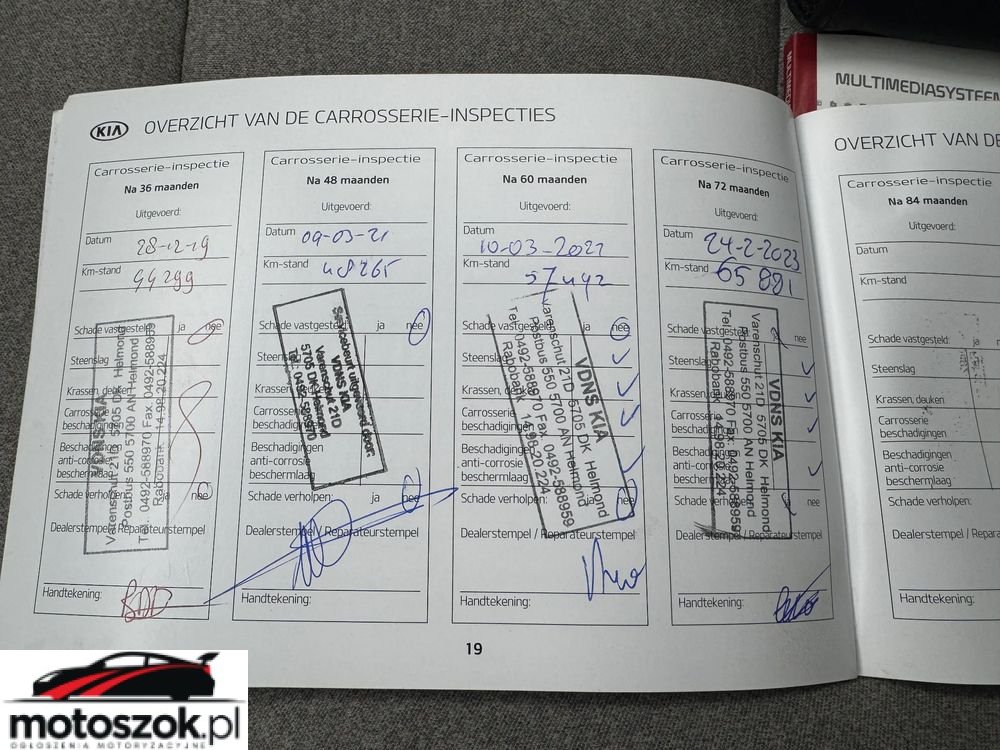 MULTIMEDIASYSTEEM
KIA
OVERZICHT VAN DE CARROSSERIE-INSPECTIES
Carrosserie-inspectie
Na 36 maanden
Uitgevoerd:
Datum
28-12-19
Km-stand
44299
Schade vastgesteld:
ja
nee
Steenslag
Krassen, deuken
Beschadigingen
anti-corrosie
beschermlaag
Schade verholpen:
ja
nee
Dealerstempel / Reparateurstempel
VDNS KIA
Varenschut 21D 5705 DK Helmond
Postbus 550 5700 AN Helmond
Tel. 0492-588970 Fax. 0492-588959
Rabobank 14.98.20.224
Handtekening:
Carrosserie-inspectie
Na 48 maanden
Uitgevoerd:
Datum
09-03-21
Km-stand
48265
Schade vastgesteld:
ja
nee
Steenslag
Krassen, deuken
Carrosserie
beschadigingen
Beschadigingen
anti-corrosie
beschermlaag
Schade verholpen:
ja
nee
Servicebeurt uitgevoerd door:
VDNS KIA
Varenschut 21D
5705 DK Helmond
Tel.: 0492-588970
Dealerstempel / Reparateurstempel
Handtekening:
Carrosserie-inspectie
Na 60 maanden
Uitgevoerd:
Datum
10-03-2021
Km-stand
57492
Schade vastgesteld:
ja
nee
Steenslag
Krassen, deuken
Carrosserie
beschadigingen
Beschadigingen
anti-corrosie
beschermlaag
Schade verholpen:
ja
nee
VDNS KIA
Varenschut 21D 5705 DK Helmond
Postbus 550 5700 AN Helmond
Tel. 0492-588970 Fax. 0492-588959
Rabobank 14.98.20.224
Dealerstempel / Reparateurstempel
Handtekening:
Carrosserie-inspectie
Na 72 maanden
Uitgevoerd:
Datum
24-2-2023
Km-stand
65881
Schade vastgesteld:
nee
Steenslag
Krassen, deuken
Carrosserie
beschadigingen
Beschadigingen
anti-corrosie
beschermlaag
Schade verholpen:
nee
VDNS KIA
Varenschut 21D 5705 DK Helmond
Postbus 550 5700 AN Helmond
Tel. 0492-588970 Fax. 0492-588959
Rabobank 14.98.20.224
Dealerstempel / Reparateurstempel
Handtekening:
19
OVERZICHT VAN DE
Carrosserie-inspectie
Na 84 maanden
Uitgevoerd:
Datum
Km-stand
Schade vastgesteld:
ja
Steenslag
Krassen, deuken
Carrosserie
beschadigingen
Beschadigingen
anti-corrosie
beschermlaag
Schade verholpen:
Dealerstempel / Repara
Handtekening:
motoszok.pl
OGŁOSZENIA MOTORYZACYJNE